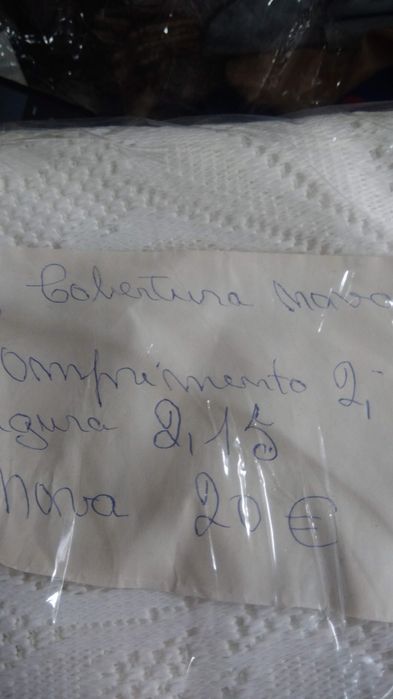 Cobertura nova
omprimento 2,
gura 2,15
Nova 20 €